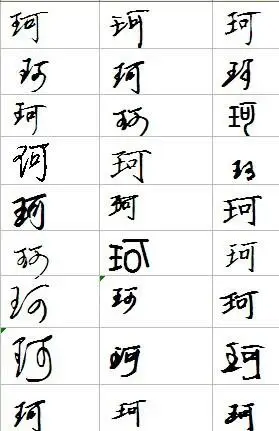 珂 珂 珂
珂 珂 珂
珂 珂 珂
珂 珂 珂
珂 珂 珂
珂 珂 珂
珂 珂 珂
珂 珂 珂
珂 珂 珂